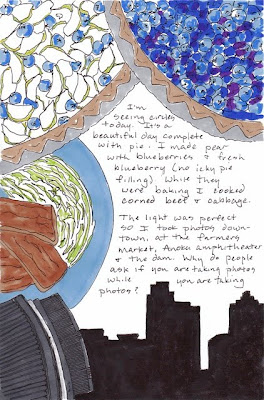 I'm
seeing circles
today. It's a
beautiful day complete
with pie. I made pear
with blueberries & fresh
blueberry (no icky pie
filling). While they
were baking I cooked
corned beef & cabbage.
The light was perfect
so I took photos down-
town, at the farmers
market, Anoka amphitheater
& the dam. Why do people
ask if you are taking photos
while you are taking
photos?